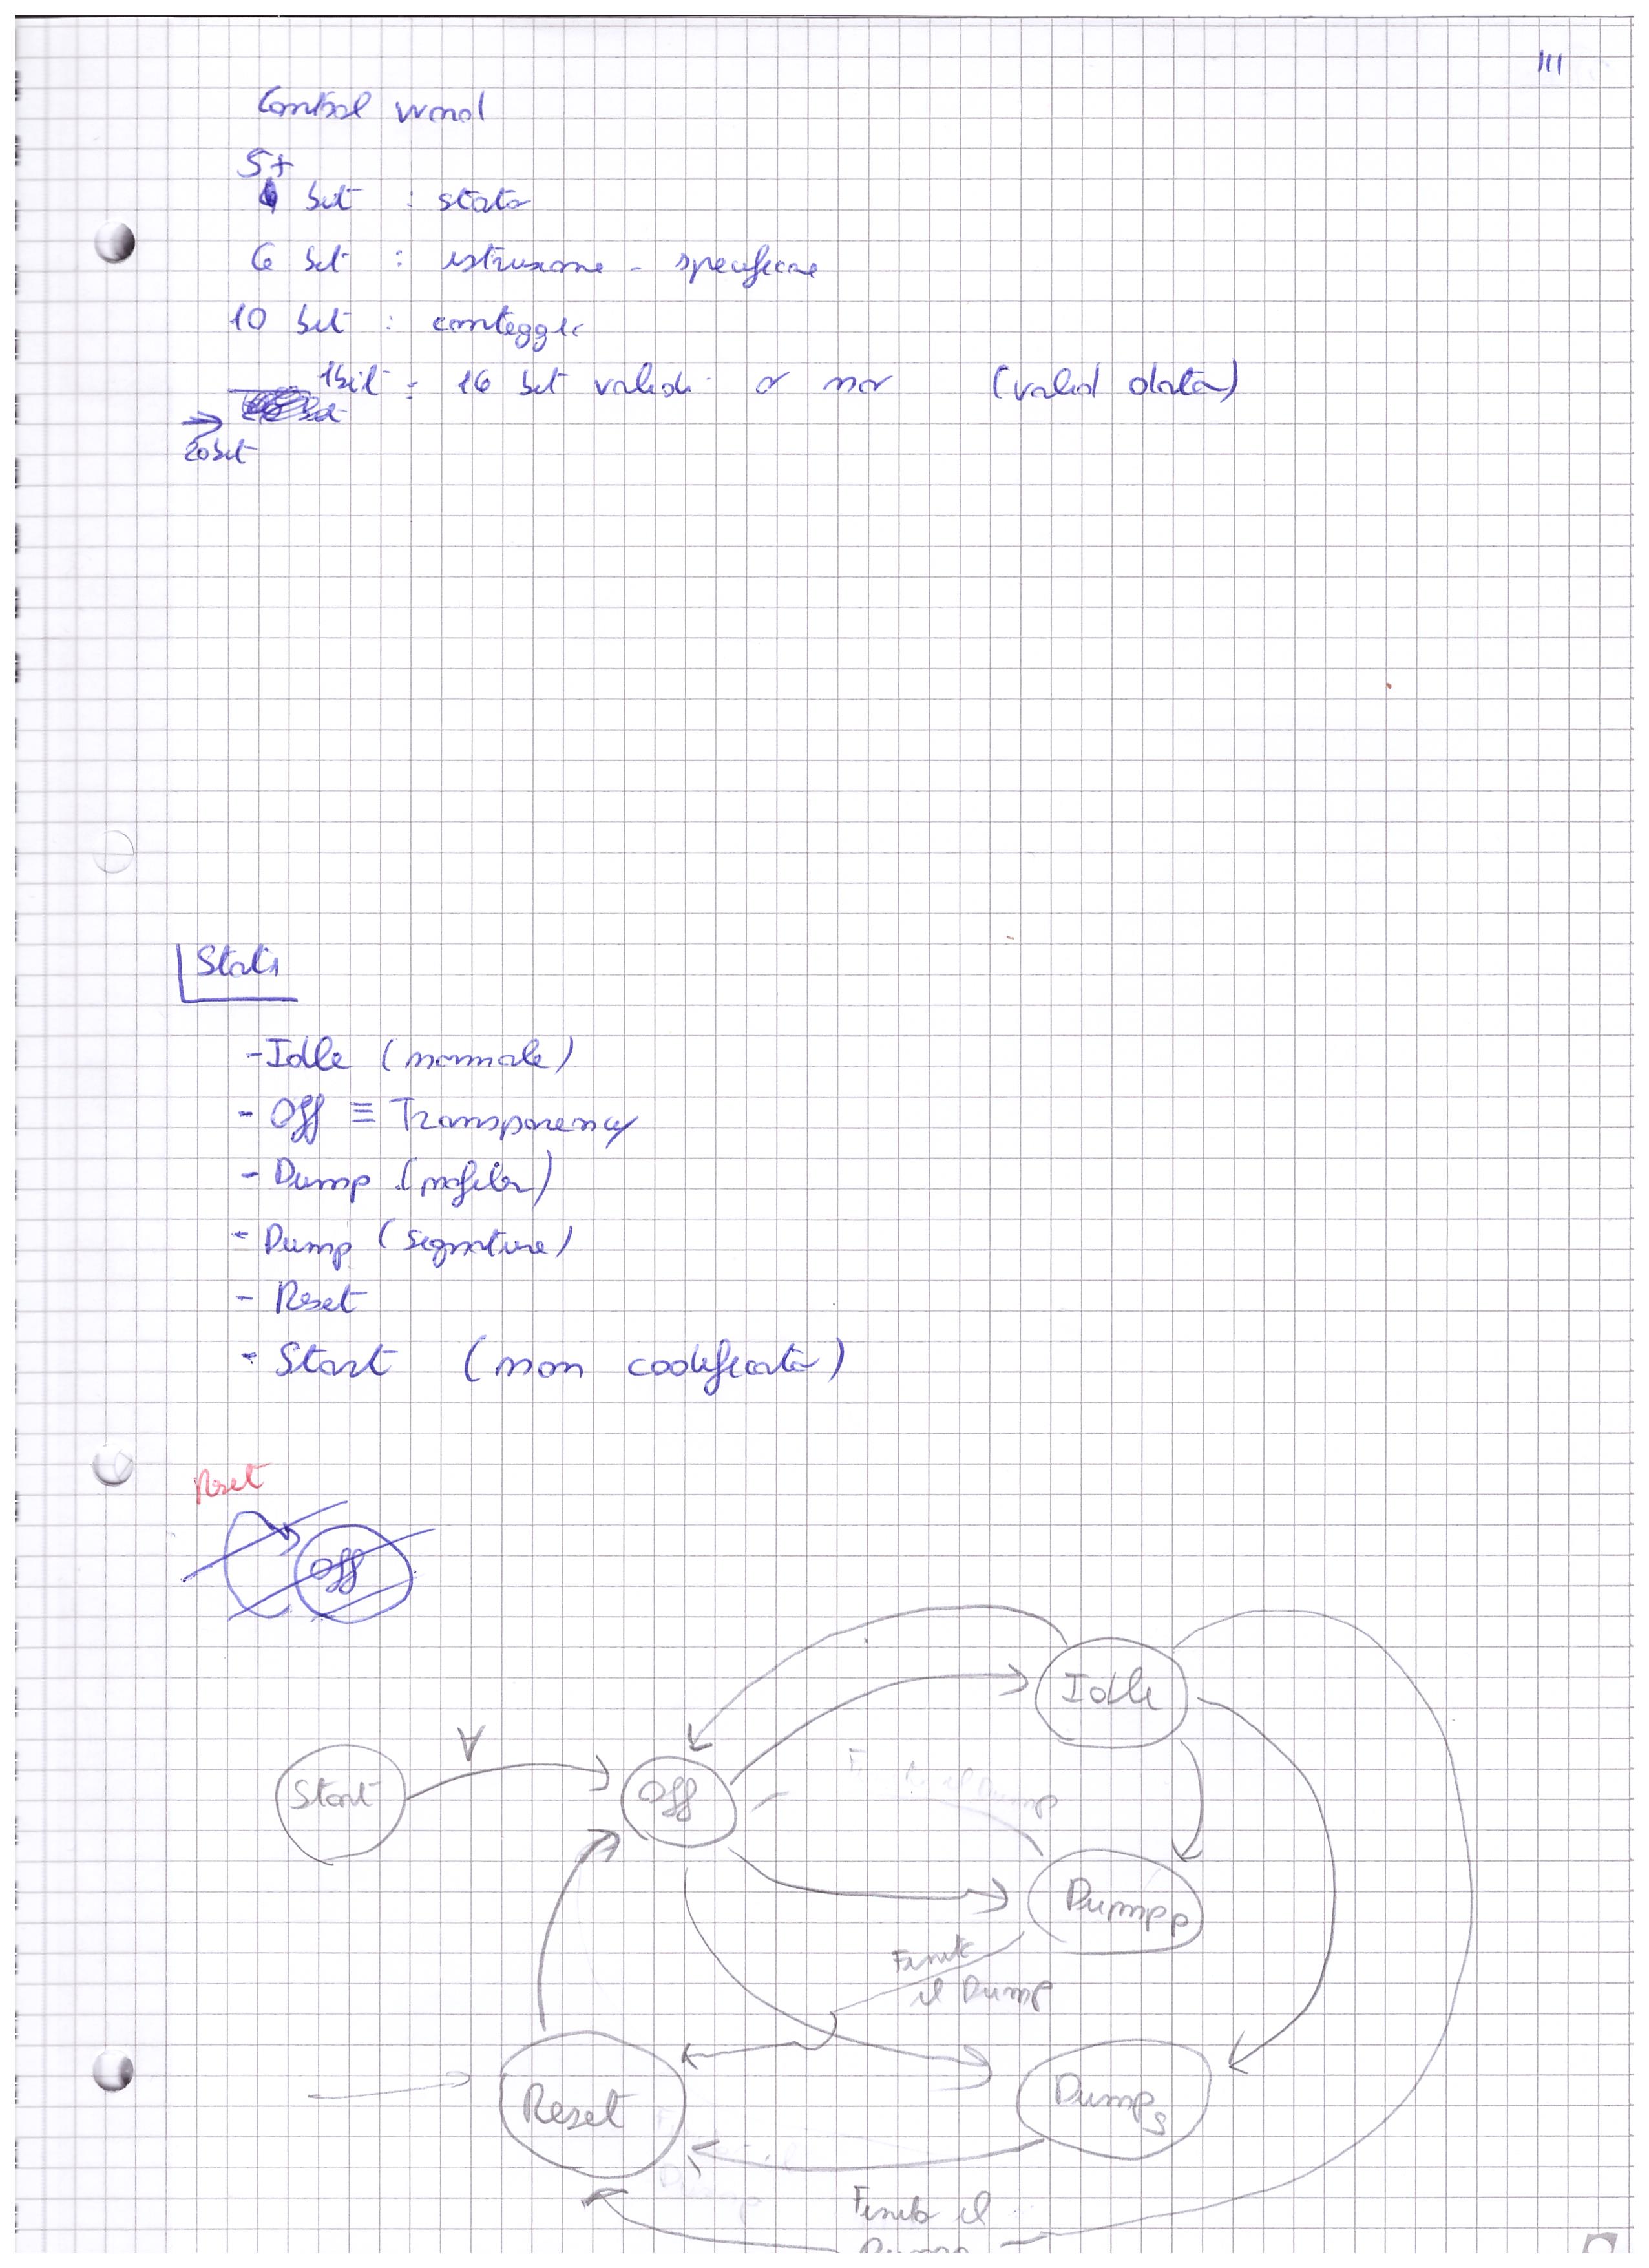 111
Control word
5+
bit : stato
6 bit : istruzione - specifiche
10 bit : conteggio
1bit : 16 bit validi o no (valid data)
20bit
Stati
- Idle (normale)
- Off ≡ Transparency
- Dump (profiler)
- Dump (signature)
- Reset
- Start (non codificato)
Reset
Off
Idle
∀
Start
Off
Finito il Dump
Dump p
Finito
il Dump
Reset
Dump s
Finito il
Dump